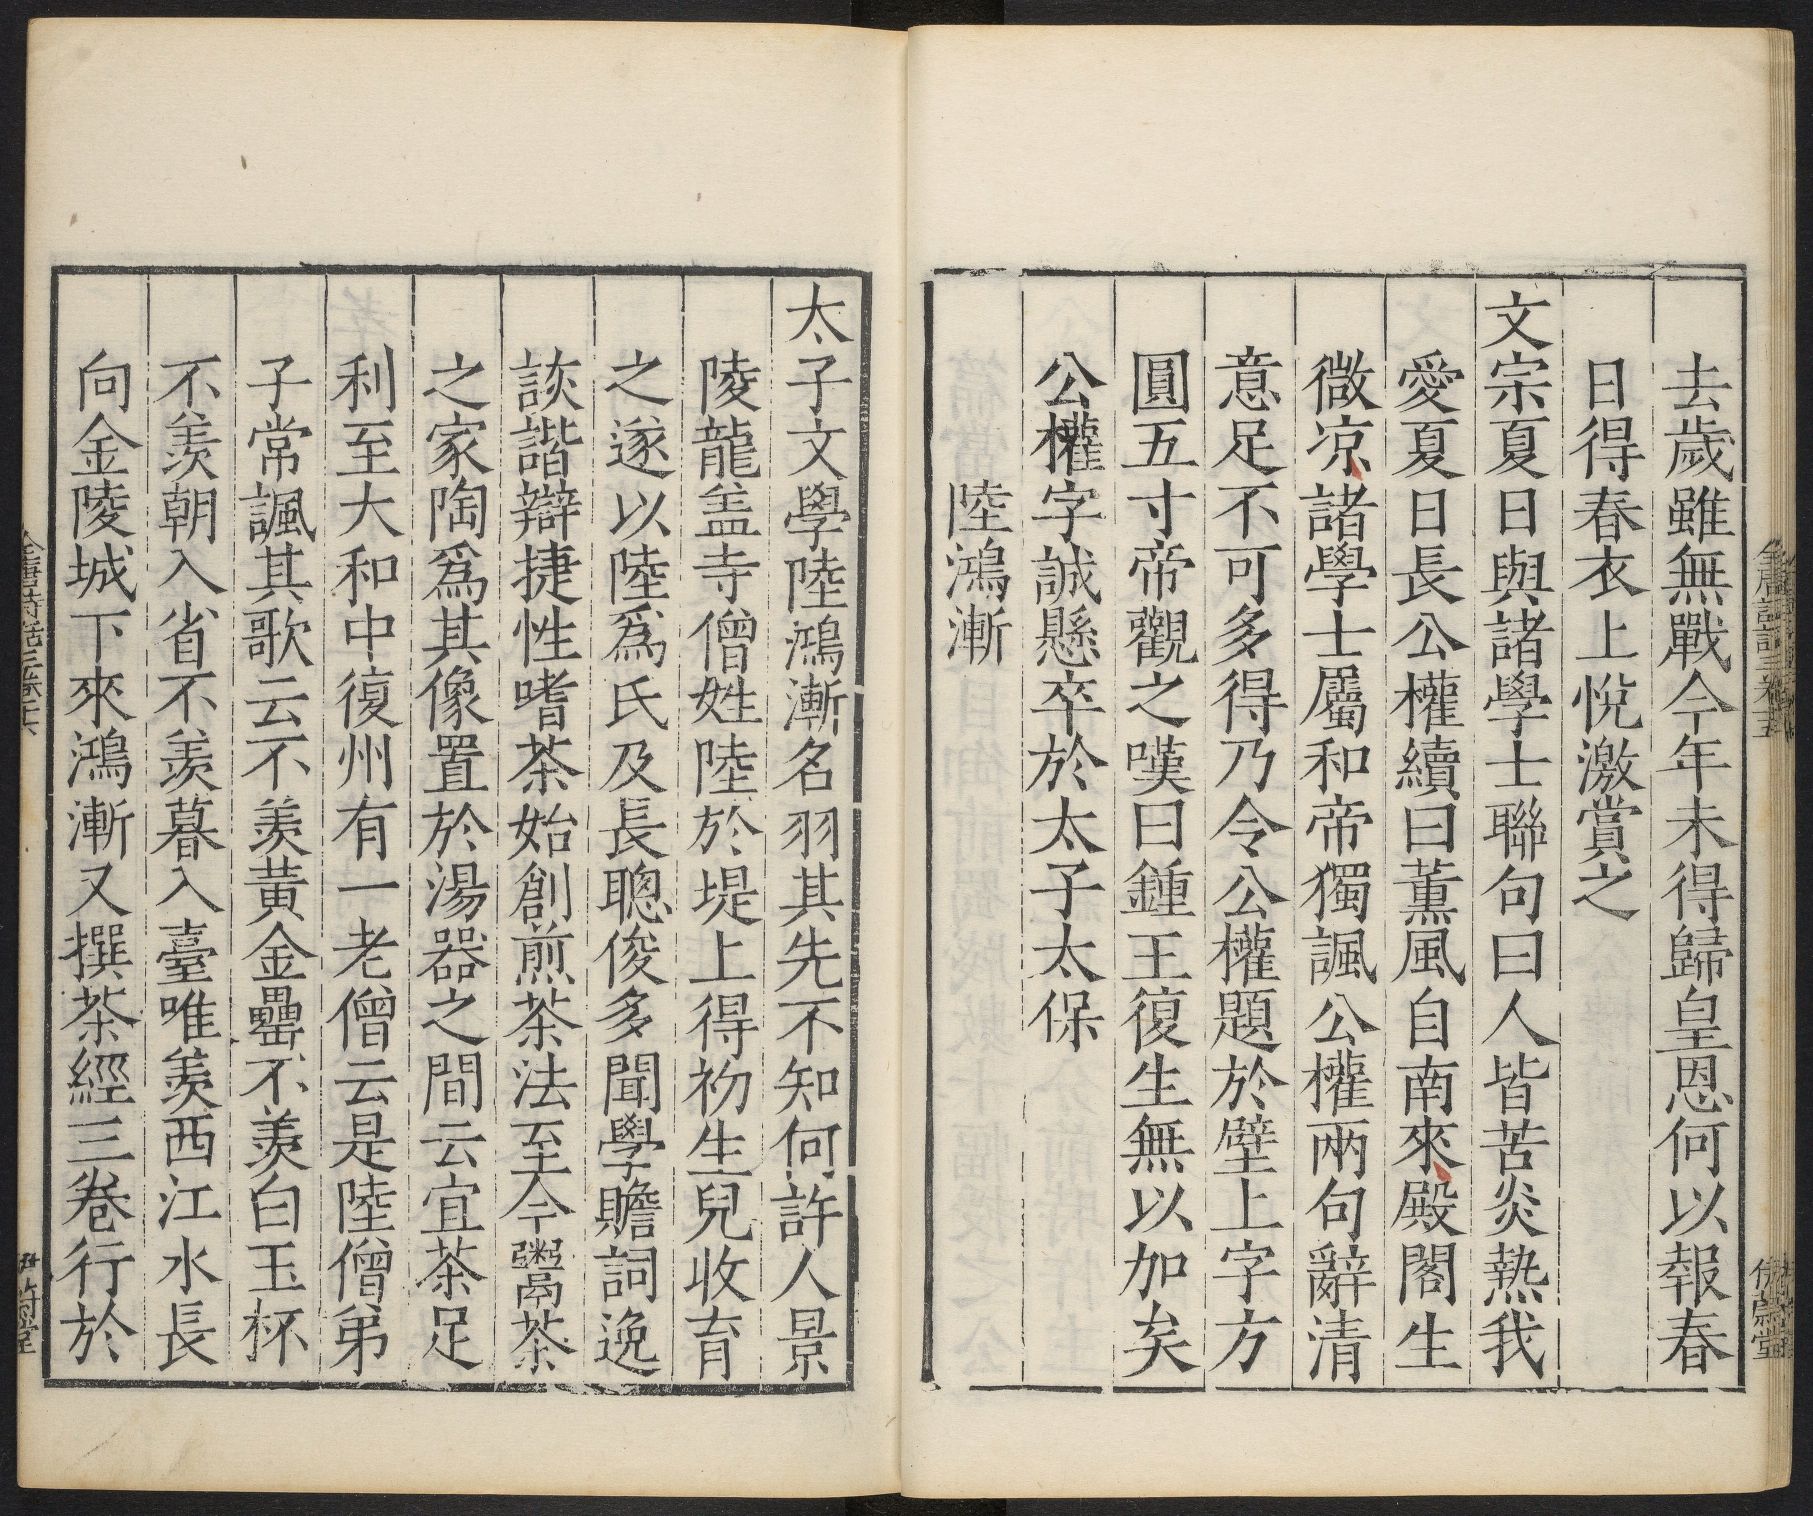 去歲雖無戰今年未得歸皇恩何以報春
日得春衣上悅激賞之
文宗夏日與諸學士聯句曰人皆苦炎熱我
愛夏日長公權續曰薰風自南來殿閣生
微凉諸學士屬和帝獨諷公權兩句辭清
意足不可多得乃令公權題於壁上字方
圓五寸帝觀之嘆曰鍾王復生無以加矣
公權字誠懸卒於太子太保
陸鴻漸
太子文學陸鴻漸名羽其先不知何許人景
陵龍盖寺僧姓陸於堤上得初生兒收育
之遂以陸爲氏及長聰俊多聞學贍詞逸
談諧辯捷性嗜茶始創煎茶法至今鬻茶
之家陶爲其像置於湯器之間云宜茶足
利至大和中復州有一老僧云是陸僧弟
子常諷其歌云不羨黃金罍不羨白玉杯
不羨朝入省不羨暮入臺唯羨西江水長
向金陵城下來鴻漸又撰茶經三卷行於